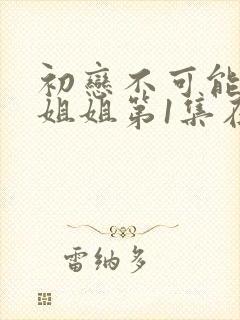 初戀不可能
姐姐第1集在
雷納多